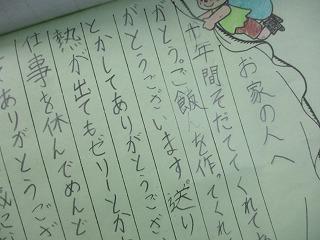 お家の人へ
十年間そだててくれてあ
がとう。ご飯を作ってくれ
がとうございます。送り
とかしてありがとうござ
熱が出てもゼリーとか
仕事を休んでめんど
ありがとうござ